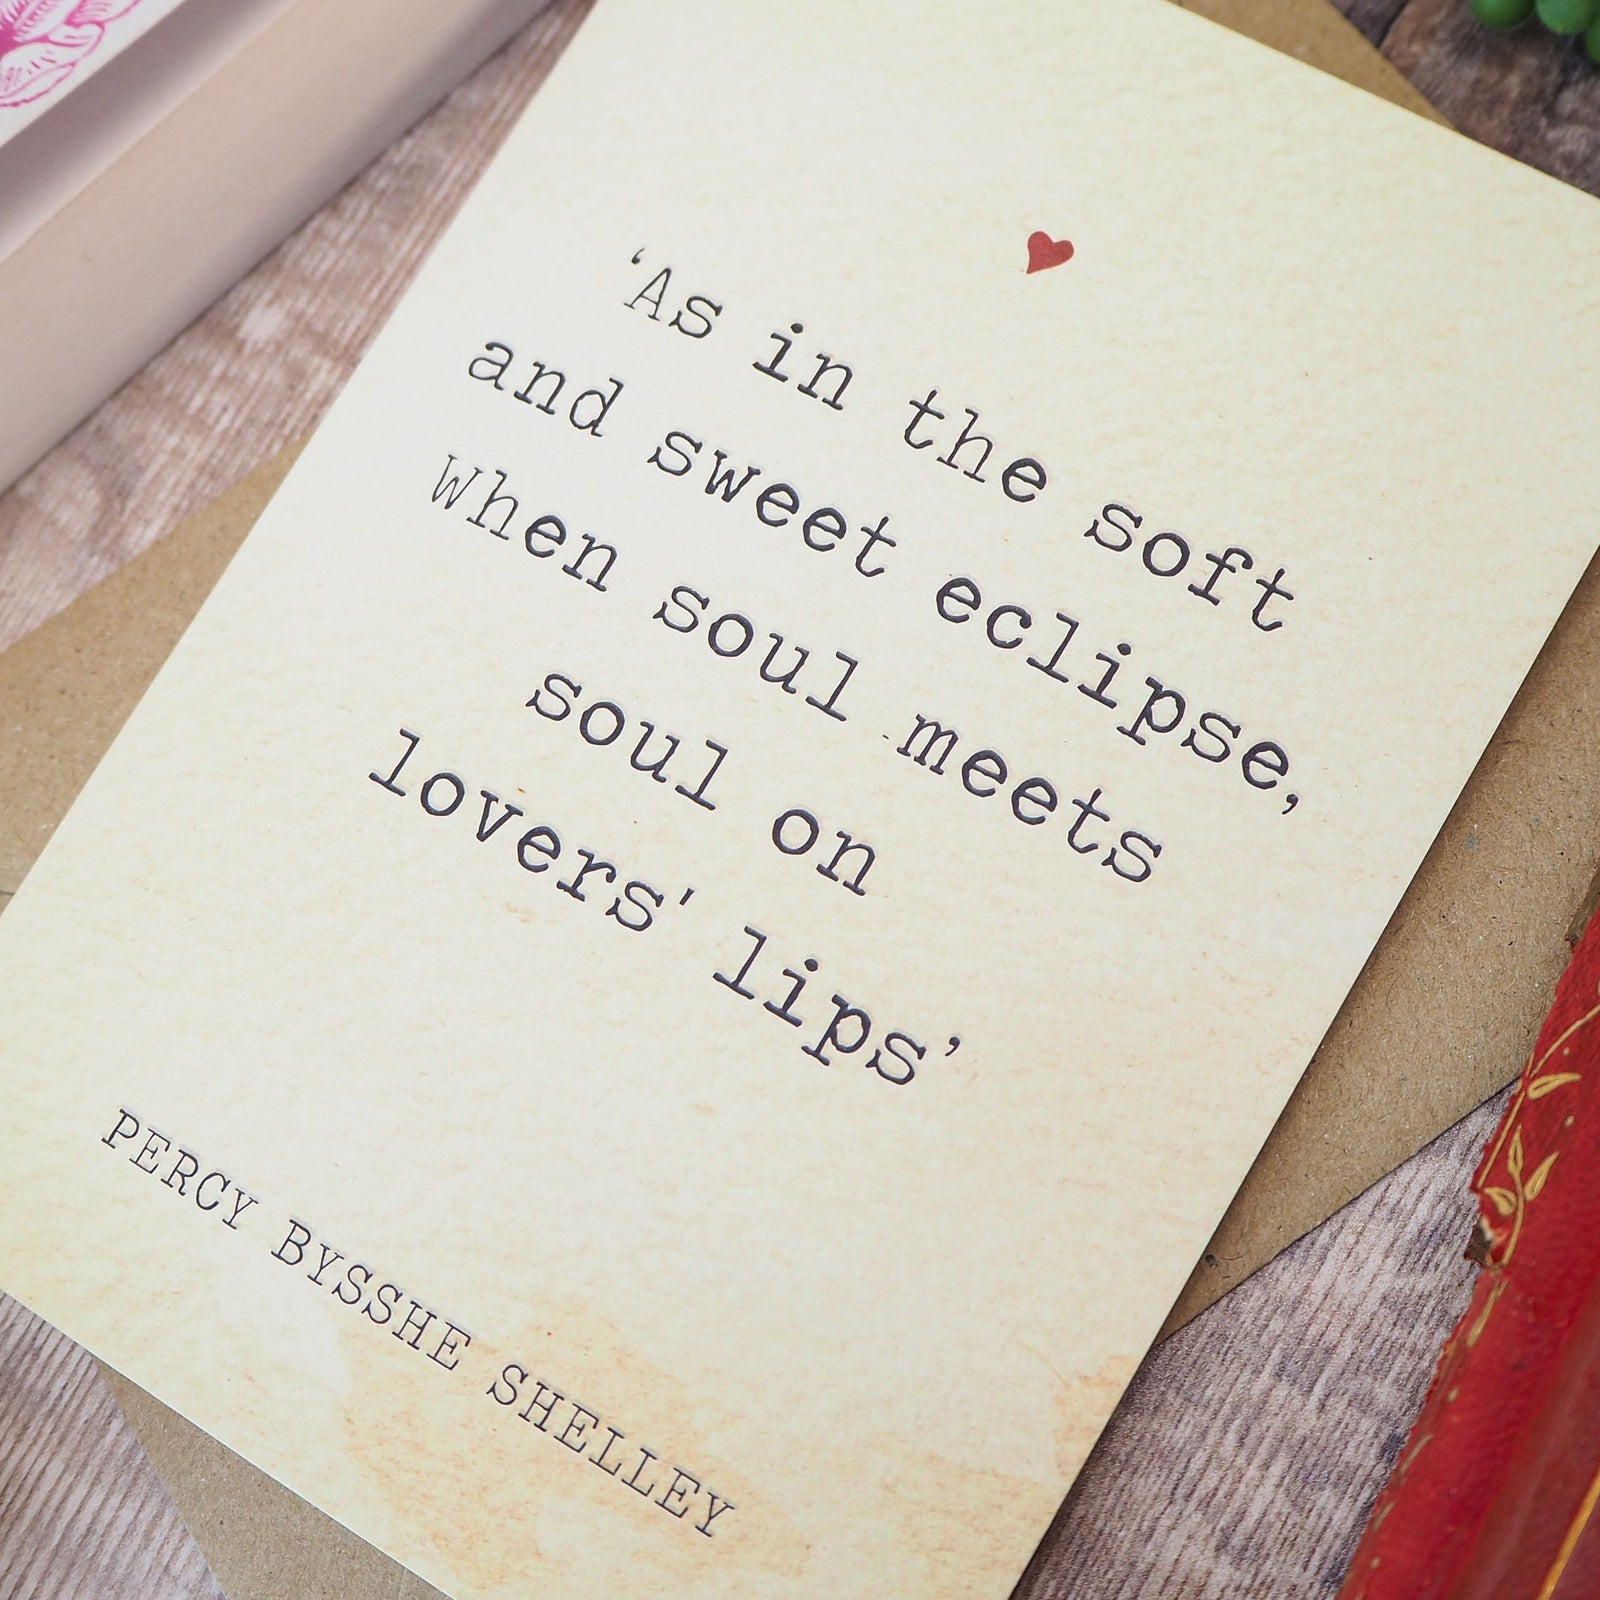 ‘As in the soft
and sweet eclipse,
When soul meets
soul on
lovers' lips’
PERCY BYSSHE SHELLEY